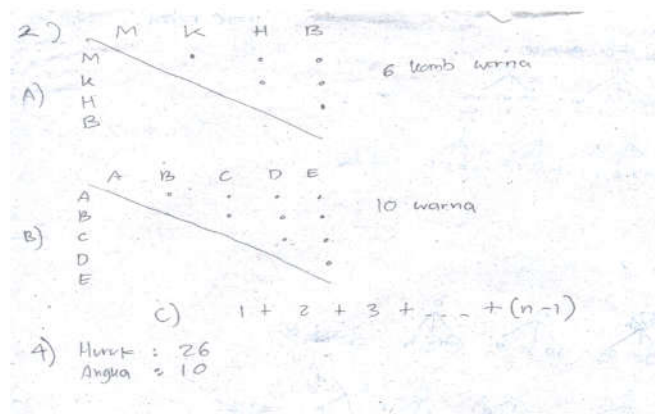 2) M K H B
M
K
A) H
B
6 komb warna
A B C D E
A
B
B) C
D
E
10 warna
C) 1 + 2 + 3 + .... + (n-1)
4) Huruf : 26
Angka : 10